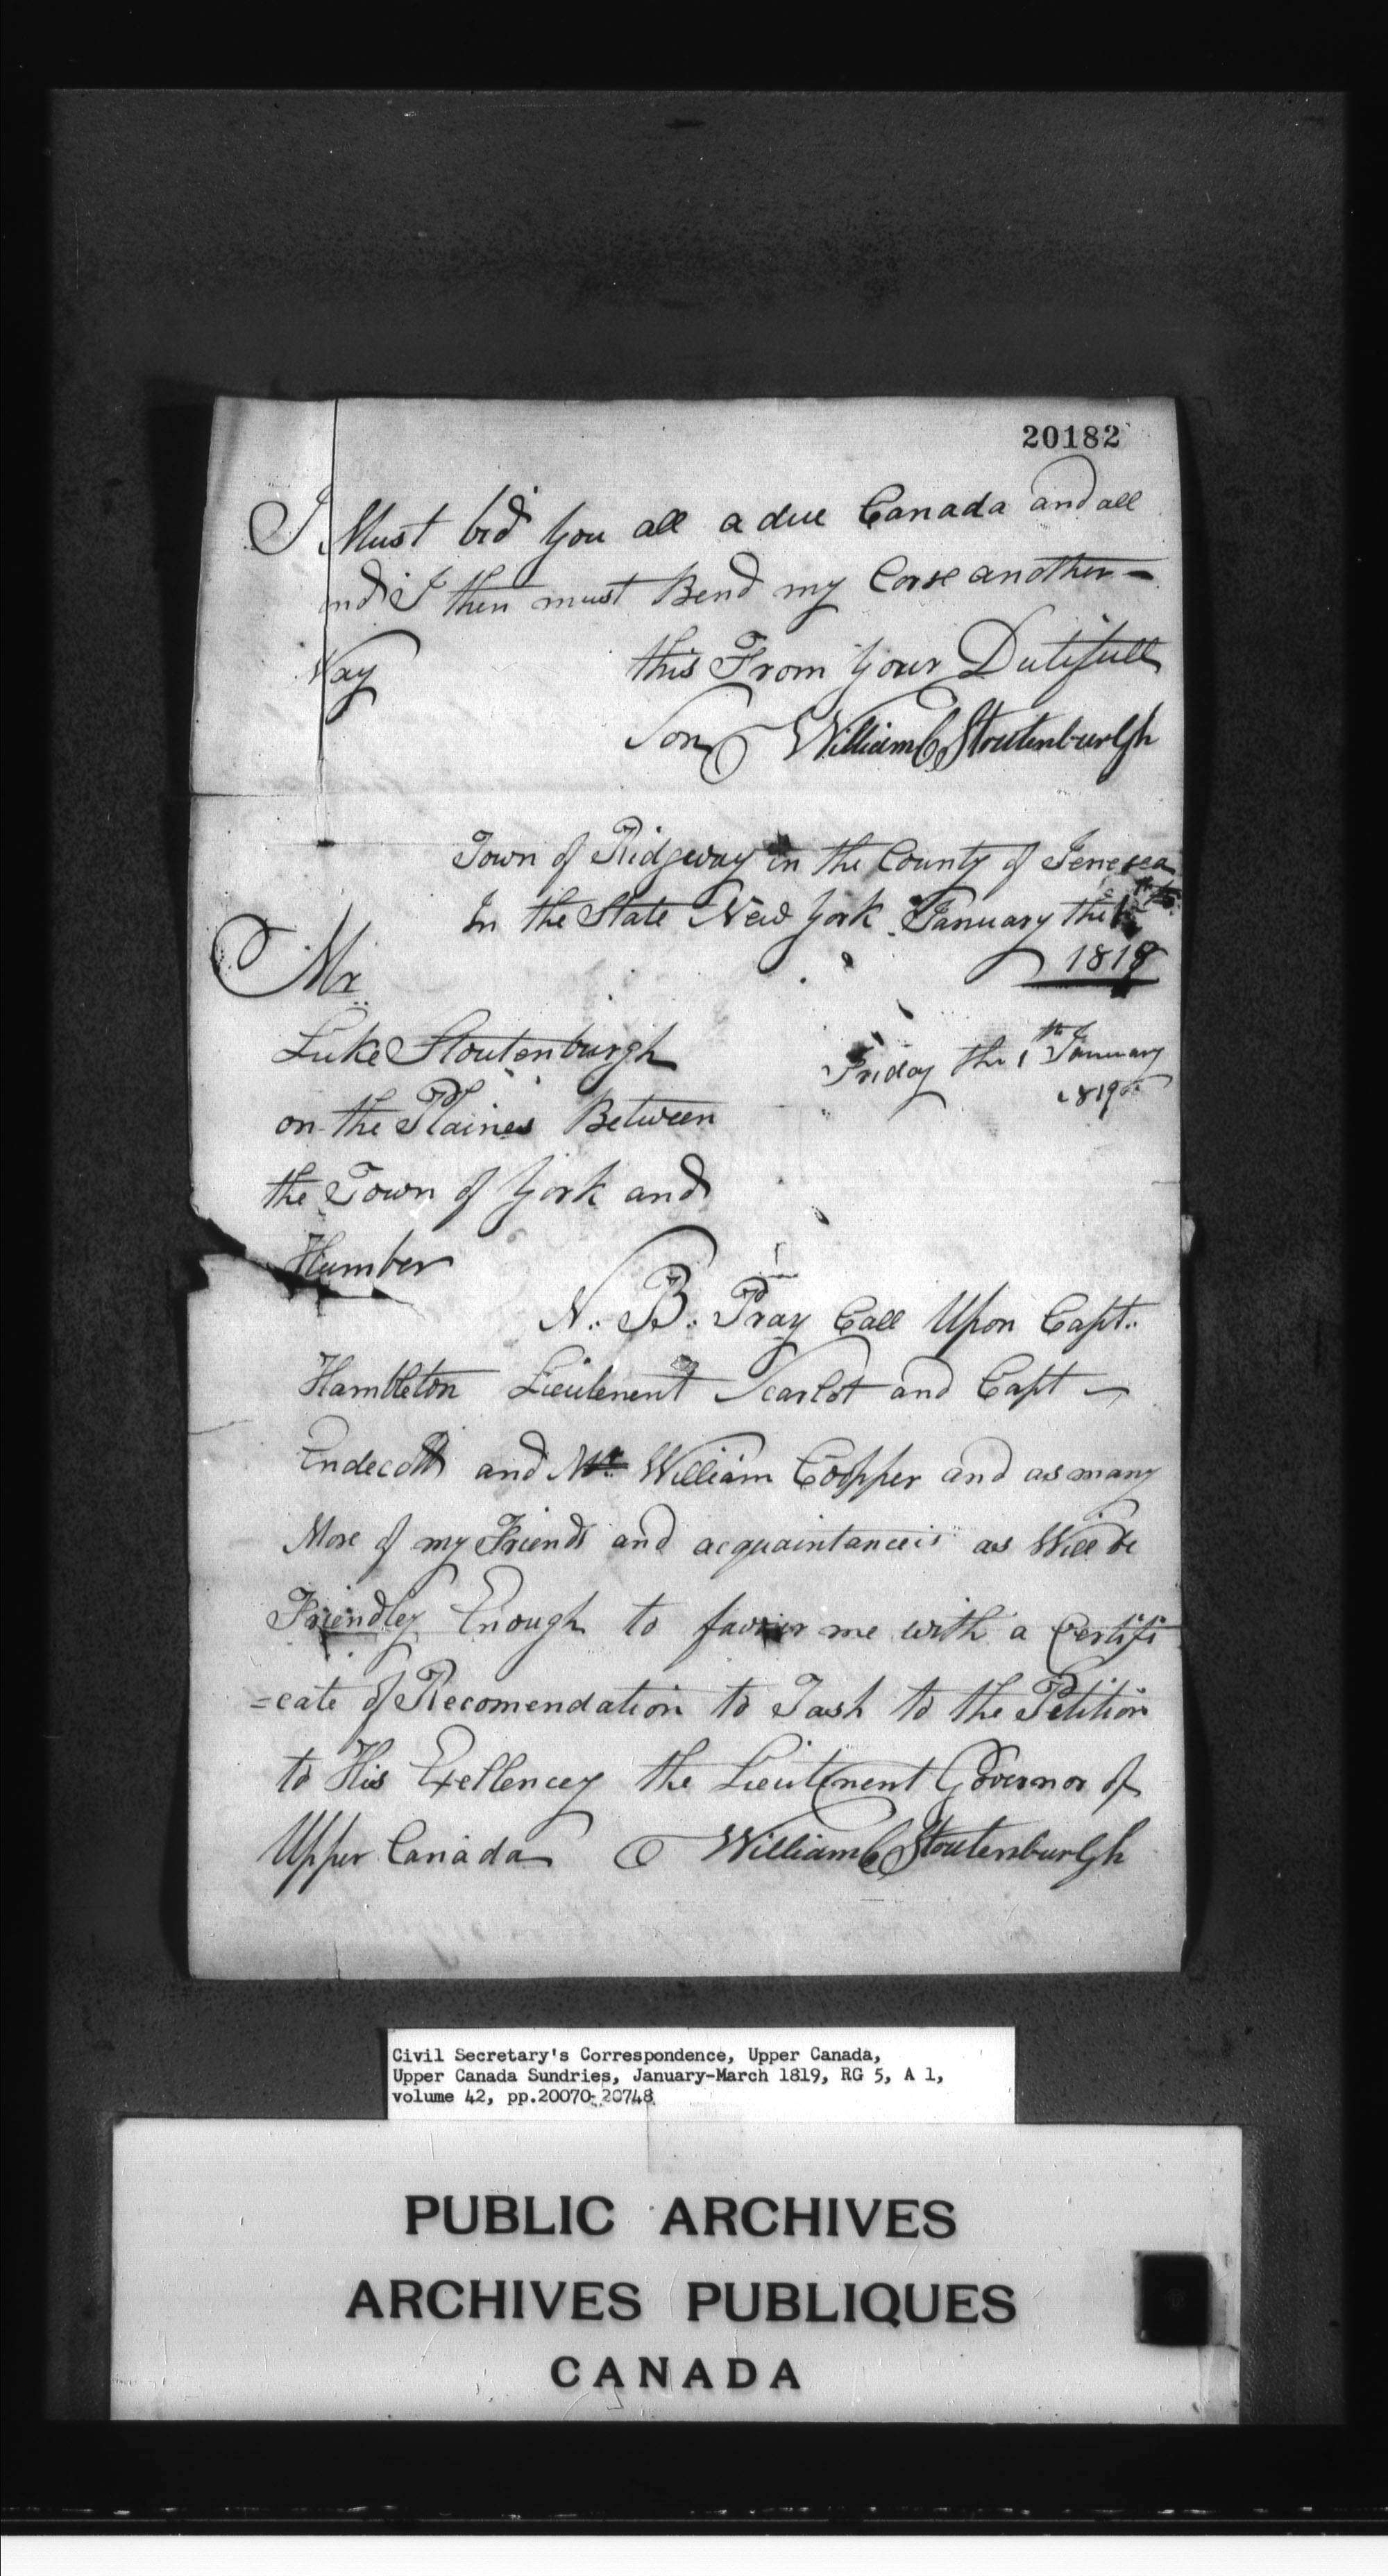 20182
I Must bid you all a due Canada and all
and I then must Bend my Corse another —
Way this From your Dutifull
Son William C Stoutenburgh
Town of Ridgeway in the County of Jenesea
In the State New York January the
1819
Mr
Luke Stoutenburgh
Friday the 1th January
1819
on the Plaines Between
the Town of York and
Humber
N. B. Pray Call Upon Capt.
Hambleton Lieutenent Scarlot and Capt —
Endecott and Mr William Coopper and as many
More of my Friends and acquaintanceis as Will be
Friendley Enough to favour me with a Certifi
=cate of Recomendation to Tash to the Petition
to His Exellencey the Lieutenent Governor of
Upper Canada William C Stoutenburgh
Civil Secretary's Correspondence, Upper Canada,
Upper Canada Sundries, January-March 1819, RG 5, A 1,
volume 42, pp.20070-20748
PUBLIC ARCHIVES
ARCHIVES PUBLIQUES
CANADA